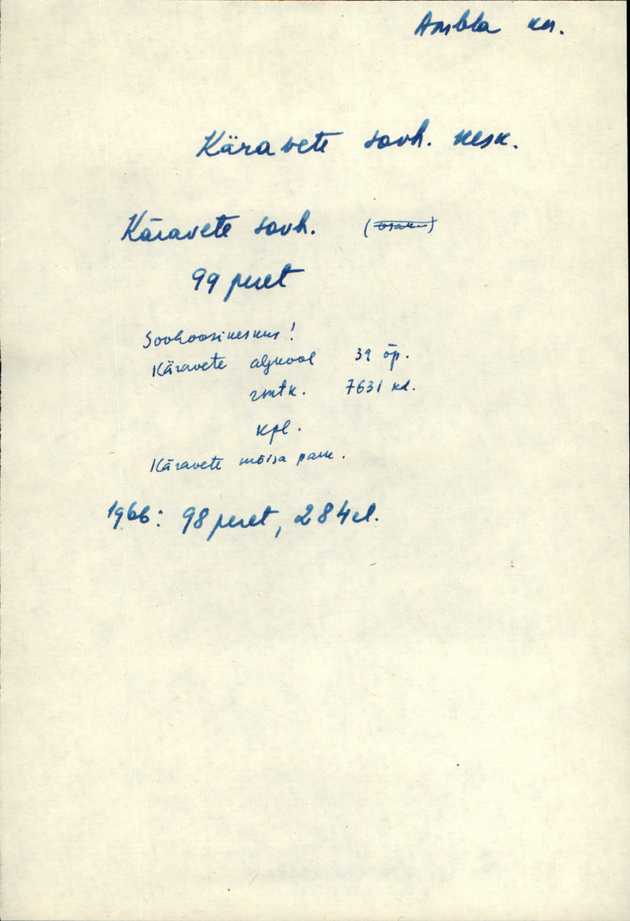 Ambla kn.
Käravete sovh. kesk.
Käravete sovh. (osak.)
99 peret
Sovhoosikeskus!
Käravete algkool 39 õp.
rmtk. 7631 kd.
kpl.
Käravete mõisa park.
1966: 98 peret, 284 el.